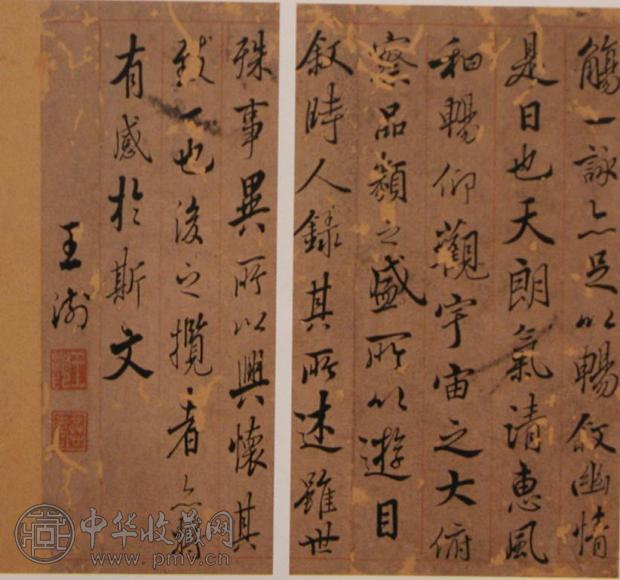 觴一詠亦足以暢敘幽情
是日也天朗氣清惠風
和暢仰觀宇宙之大俯
察品類之盛所以遊目
敘時人錄其所述雖世
殊事異所以興懷其
致一也後之攬者亦將
有感於斯文
王澍
中华收藏网
www.pmv.cn